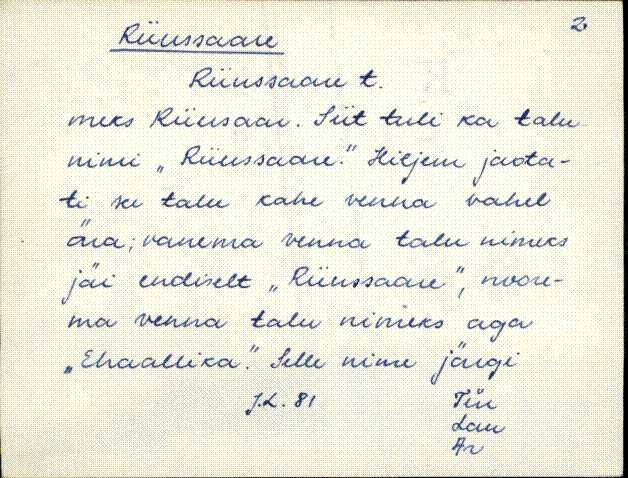 2
Rüüssaare
Rüüssaare t.
meks Rüüsaar. Siit tuli ka talu
nimi „Rüüssaare." Hiljem jaota-
ti se talu kahe venna vahel
ära; vanema venna talu nimeks
jäi endiselt „Rüüssaare", noore-
ma venna talu nimeks aga
„Ehaallika". Selle nime järgi
J.L. 81 Tür
Lau
Ar